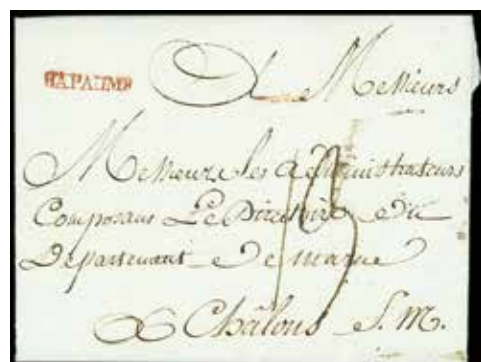 BAPAUME
A Messieurs
Messieurs les administrateurs
Composans Le Directoire du
Departement de marne
A Châlons S. M.